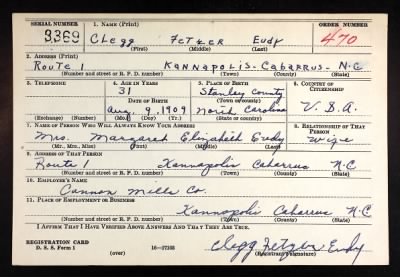 SERIAL NUMBER 1. NAME (Print) ORDER NUMBER
3369 Clegg Fetzer Eudy 470
(First) (Middle) (Last)
2. ADDRESS (Print)
Route 1 Kannapolis - Cabarrus - N.C
(Number and street or R. F. D. number) (Town) (County) (State)
3. TELEPHONE 4. AGE IN YEARS 5. PLACE OF BIRTH 6. COUNTRY OF CITIZENSHIP
31 Stanley County
DATE OF BIRTH (Town or county)
Aug 9 1909 North Carolina U.S.A.
(Exchange) (No.) (Mo.) (Day) (Yr.) (State or country)
7. NAME OF PERSON WHO WILL ALWAYS KNOW YOUR ADDRESS 8. RELATIONSHIP OF THAT PERSON
Mrs. Margaret Elizabeth Eudy wife
(Mr., Mrs., Miss) (First) (Middle) (Last)
9. ADDRESS OF THAT PERSON
Route 1 Kannapolis Cabarrus N.C
(Number and street or R. F. D. number) (Town) (County) (State)
10. EMPLOYER'S NAME
Cannon Mills Co.
11. PLACE OF EMPLOYMENT OR BUSINESS
Kannapolis Cabarrus N.C
(Number and street or R. F. D. number) (Town) (County) (State)
I AFFIRM THAT I HAVE VERIFIED ABOVE ANSWERS AND THAT THEY ARE TRUE.
REGISTRATION CARD Clegg Fetzer Eudy
D. S. S. Form 1 16—17105 (Registrant's signature)